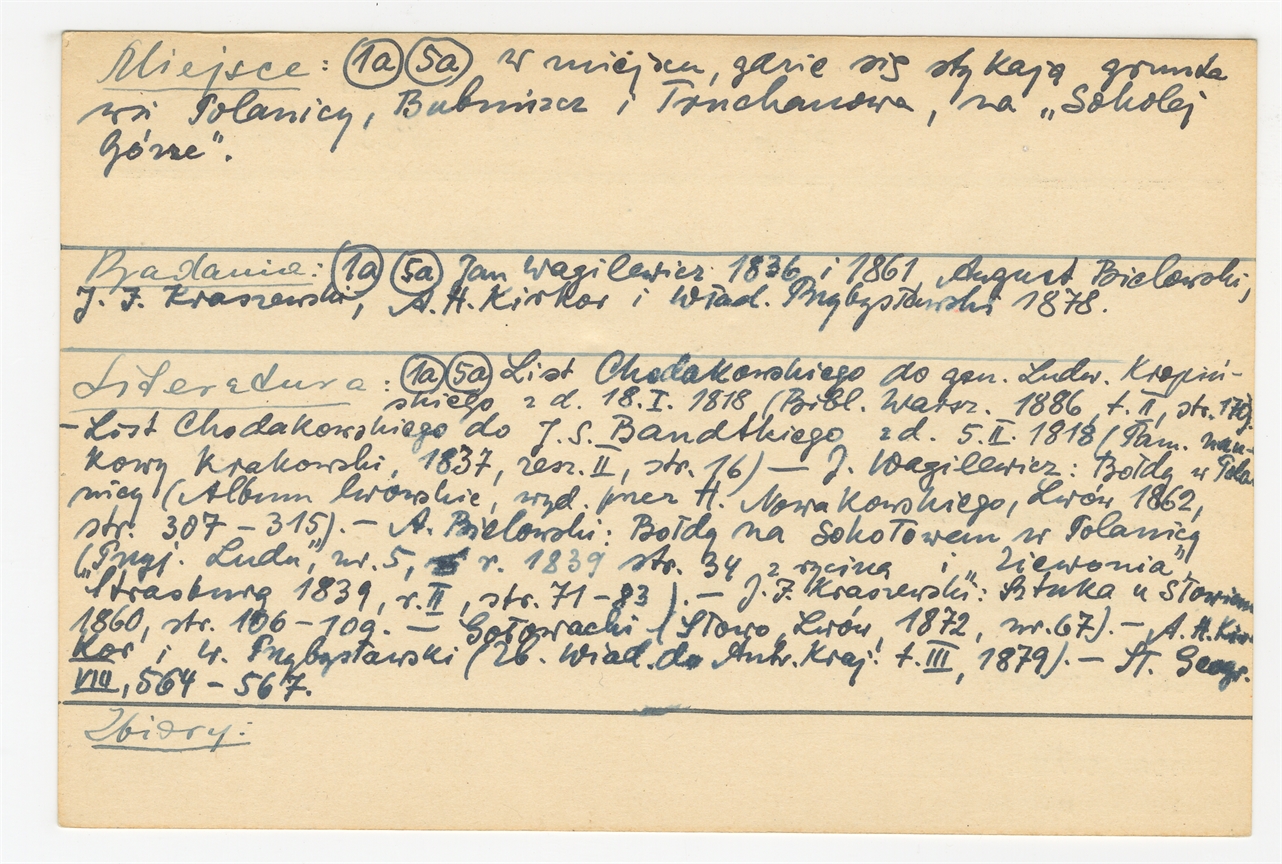 Miejsce: 1a 5a w miejscu, gdzie się stykają grunta
wsi Polanicy, Bubniszcz i Truchanowa, na „Sokolej
Górze".
Badania: 1a 5a Jan Wagilewicz 1836 i 1861 August Bielowski,
J. I. Kraszewski, A. H. Kirkor i Wład. Przybysławski 1878.
Literatura: 1a 5a List Chodakowskiego do gen. Ludw. Kropiń-
skiego z d. 18. I. 1818 (Bibl. Warsz. 1886, t. II, str.
- List Chodakowskiego do J. S. Bandtkiego z d. 5. II. 1818 (Pam. nau-
kowy Krakowski, 1837, zesz. II, str. 16) — J. Wagilewicz: Bołdy w Pola-
nicy (Album lwowskie, wyd. przez H. Nowakowskiego, Lwów 1862,
str. 307 - 315). - A. Bielowski: Bołdy na Sokołowem w Polanicy
(„Przyj. Ludu", nr. 5, r. 1839 str. 34 z ryciną i „Ziewonia",
Strasburg 1839, r. II, str. 71 - 83). - J. I. Kraszewski: Sztuka u Słowian
1860, str. 106 - 109. — Gołowacki (Słowo, Lwów, 1872, nr. 67). - A. H. Kir-
kor i W. Przybysławski (Zb. Wiad. do Antr. Kraj. t. III, 1879). - Sł. Geogr.
VIII, 564 - 567.
Zbiory: